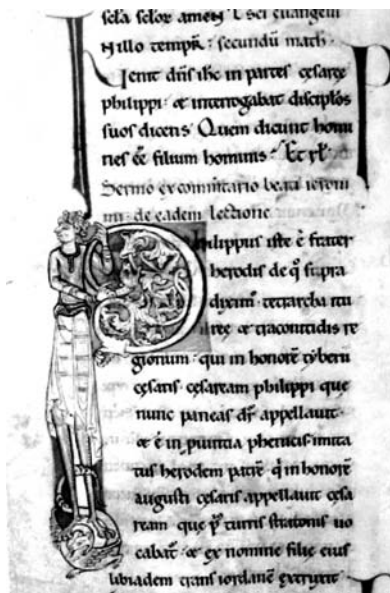 scła scłoꝝ amen L sci euangelii
N illo tempr̄ : secundū math .
Uenit dn̄s ihc in partes cęsaręę
philippi · et interrogabat discipłos
suos dicens · Quem dicunt homi
nes eē filium hominis · Et rł ·
Sermo ex commtario beati ieroni
mi · de eadem lectione
Philippus iste ē frater
herodis de q̊ supra
diximꝰ · tetrarcha itu
ręę et traconitidis re
gionum · qui in honorē tyberii
cęsaris · cęsaream philippi quę
nunc paneas dr̄ appellauit ·
et ē in puintia phenicis · imita
tus herodem patrē q̇ in honorē
augusti cęsaris appellauit cęsa
ream quę p̄ turris stratonis uo
cabat᷑ · et ex nomine filię eius
libiadem trans iordanē extruxit